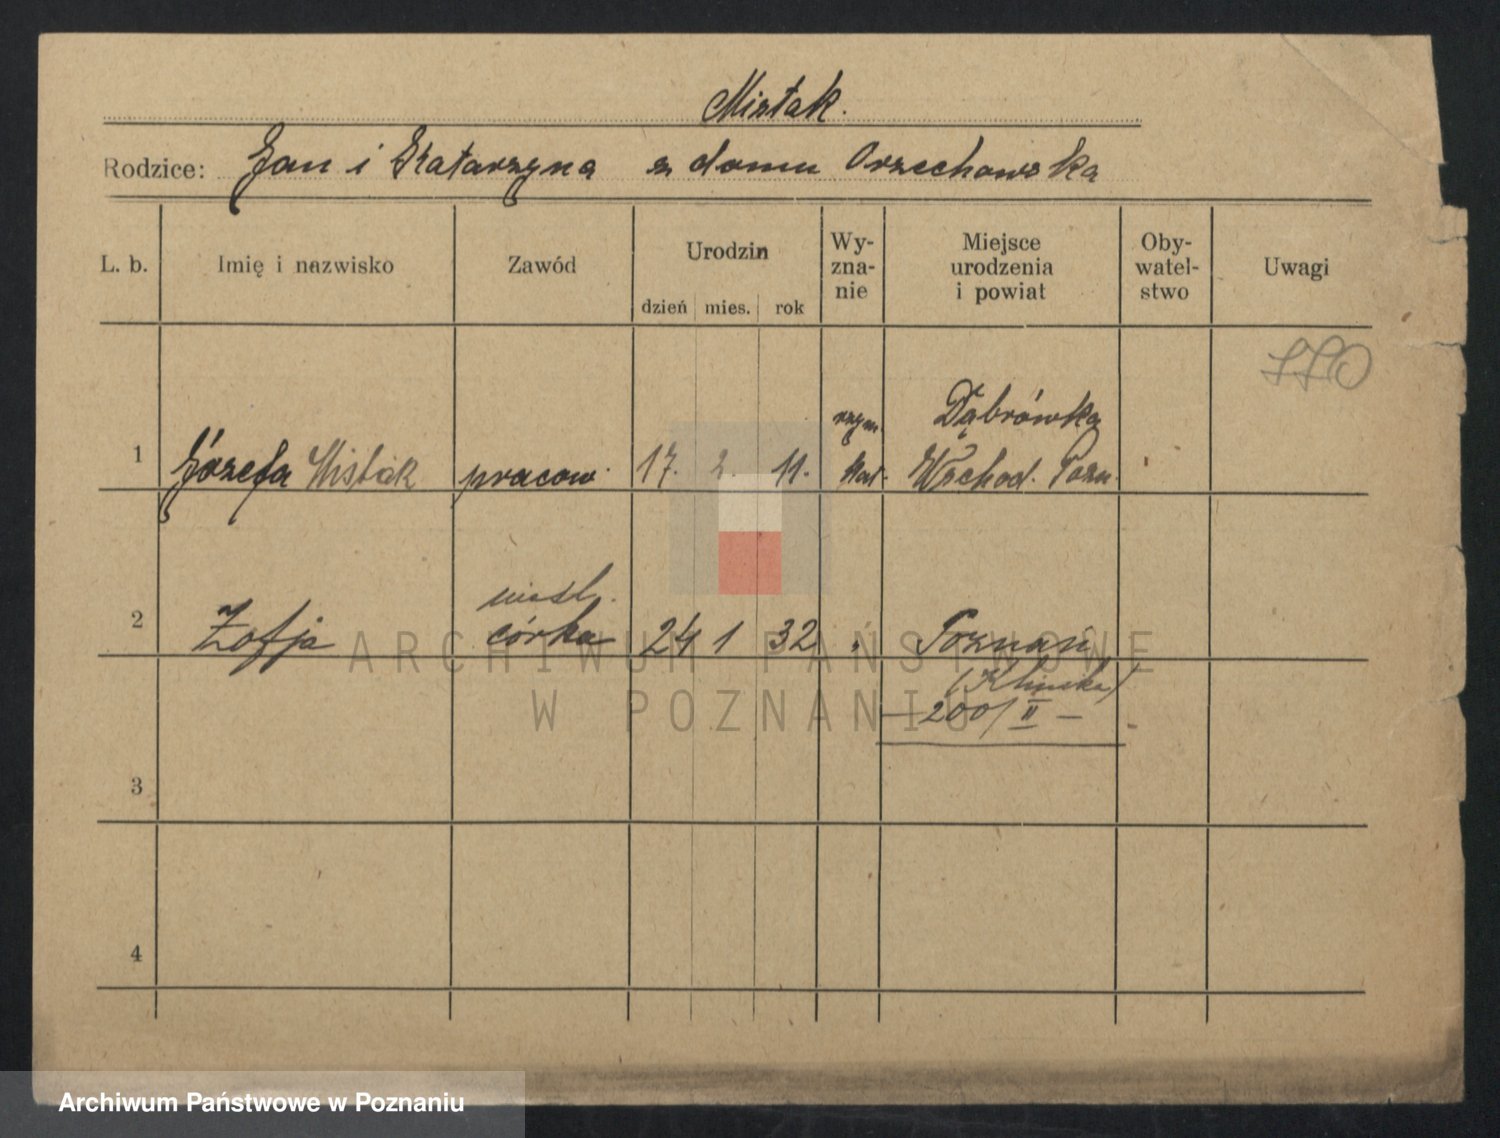 Mistak.
Rodzice: Jan i Katarzyna z domu Orzechowska
L. b. Imię i nazwisko Zawód Urodzin dzień mies. rok Wy-zna-nie Miejsce urodzenia i powiat Oby-watel-stwo Uwagi
rzym. Dąbrówka
1 Józefa Mistak pracow. 17. 2. 11. kat. Wschod. Pozn.
nieśl.
2 Zofja córka 24 1 32 " Poznań
200/II —
3
4
ARCHIWUM PAŃSTWOWE
W POZNANIU
Archiwum Państwowe w Poznaniu